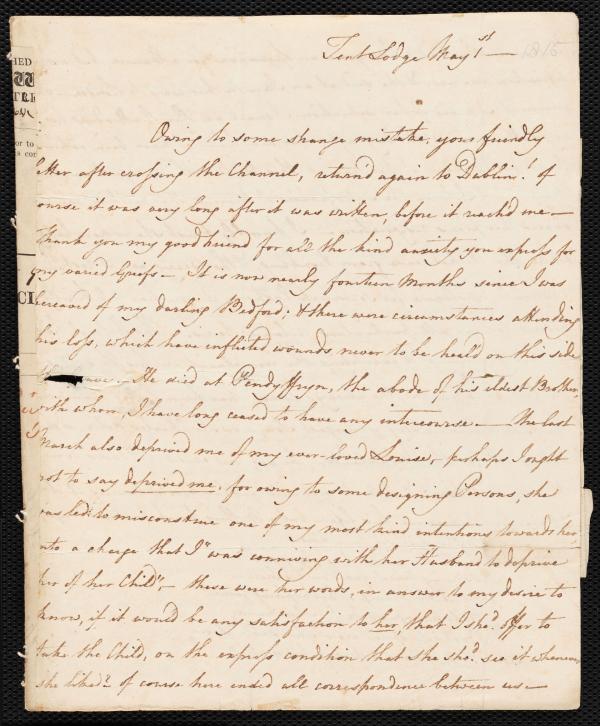 Tent Lodge May 1st — 1815
Owing to some strange mistake, your friendly
letter after crossing the Channel, return'd again to Dublin! of
ourse it was very long after it was written, before it reach'd me —
Thank you my good friend for all the kind anxiety you express for
my varied Griefs — It is now nearly fourteen Months since I was
bereaved of my darling Bedford; & there were circumstances attending
his loss, which have inflicted wounds never to be heal'd on this side
— He died at Pendyffryn, the abode of his eldest Brother,
with whom, I have long ceased to have any intercourse — The last
March also deprived me of my ever-loved Louisa, perhaps I ought
not to say deprived me, for owing to some designing Persons, she
was led to misconstrue one of my most kind intentions towards her
into a charge that I "was conniving with her Husband to deprive
her of her Child", — these were her words, in answer to my desire to
know, if it would be any satisfaction to her, that I shd. offer to
take the Child, on the express condition that she shd. see it whenever
she liked? of course here ended all correspondence between us —
HED
TRE
or to
s con
CL